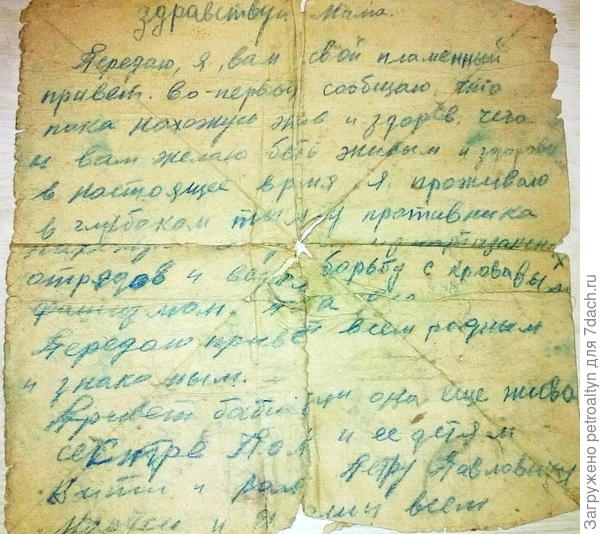 здравствуй Мама.
Передаю, я, вам свой пламенный
привет. Во-первых сообщаю, что
пока нахожусь жив и здоров, чего
и вам желаю быть живым и здоровы
в настоящее время я, проживаю
в глубоком тылу у противника
партизанских
отрядов и борьбу с кровавым
фашизмом.
Передаю привет всем родным
и знакомым.
Привет она еще жива
сестре и ее детям
Кати и Петру Павловичу
и всем
Загружено petroaltyn для 7dach.ru